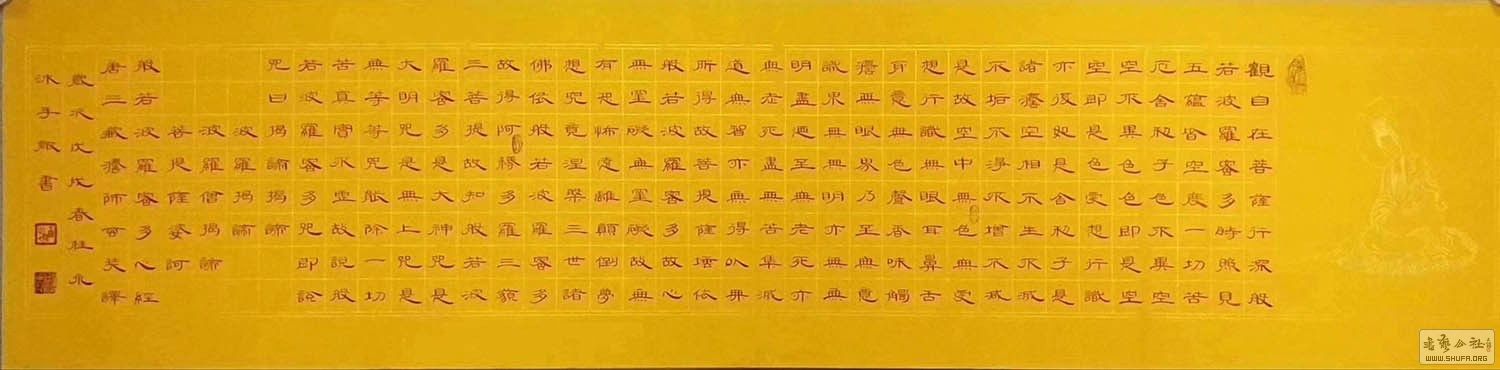 觀自在菩薩行深般
若波羅蜜多時照見
五蘊皆空度一切苦
厄舍利子色不異空
空不異色色即是空
空即是色受想行識
亦復如是舍利子是
諸灋空相不生不滅
不垢不淨不增不減
是故空中無色無受
想行識無眼耳鼻舌
身意無色聲香味觸
灋無眼界乃至無意
識界無無明亦無無
明盡迺至無老死亦
無老死盡無苦集滅
道無智亦無得以無
所得故菩提薩埵依
般若波羅蜜多故心
無罣礙無罣礙故無
有恐怖遠離顛倒夢
想究竟涅槃三世諸
佛依般若波羅蜜多
故得阿耨多羅三藐
三菩提故知般若波
羅蜜多是大神咒是
大明咒是無上咒是
無等等咒能除一切
苦真實不虛故說般
若波羅蜜多咒即說
咒曰揭諦揭諦
波羅揭諦
波羅僧揭諦
菩提薩婆訶
般若波羅蜜多心經
唐三藏灋師玄奘譯
歲次戊戌春桂永
沐手敬書
書藝公社
WWW.SHUFA.ORG